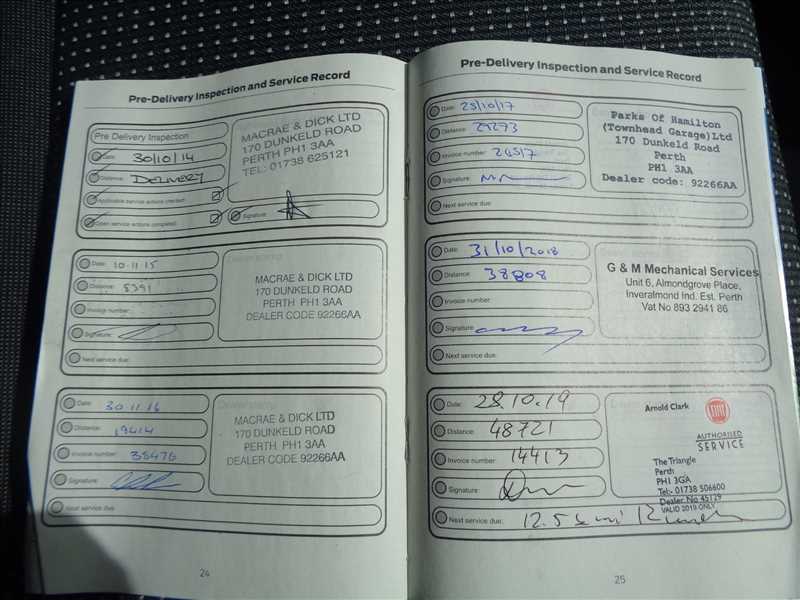 Pre-Delivery Inspection and Service Record
Pre Delivery Inspection
Date: 30/10/14
Distance: DELIVERY
Applicable service actions checked
Open service actions completed
Signature:
MACRAE & DICK LTD
170 DUNKELD ROAD
PERTH PH1 3AA
TEL: 01738 625121
Date: 10.11.15
Distance: 8391
Invoice number:
Signature:
Next service due:
Dealer stamp
MACRAE & DICK LTD
170 DUNKELD ROAD
PERTH PH1 3AA
DEALER CODE 92266AA
Date: 30.11.16
Distance: 19414
Invoice number: 38476
Signature:
Next service due:
Dealer stamp
MACRAE & DICK LTD
170 DUNKELD ROAD
PERTH PH1 3AA
DEALER CODE 92266AA
24
Pre-Delivery Inspection and Service Record
Date: 25/10/17
Distance: 29273
Invoice number: 24517
Signature:
Next service due:
Parks Of Hamilton
(Townhead Garage)Ltd
170 Dunkeld Road
Perth
PH1 3AA
Dealer code: 92266AA
Date: 31/10/2018
Distance: 38808
Invoice number:
Signature:
Next service due:
G & M Mechanical Services
Unit 6, Almondgrove Place,
Inveralmond Ind. Est. Perth
Vat No 893 2941 86
Date: 28.10.19
Distance: 48721
Invoice number: 14413
Signature:
Next service due: 12.5
Arnold Clark
FIAT
AUTHORISED
SERVICE
The Triangle
Perth
PH1 3GA
Tel:- 01738 506600
Dealer No 45129
VALID 2019 ONLY
25